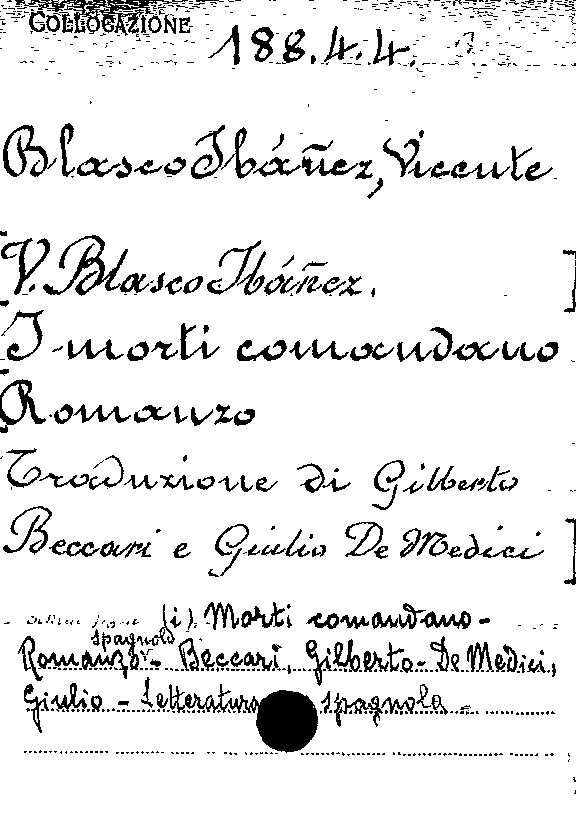 COLLOCAZIONE 188.4.4.
Blasco Ibáñez, Vicente
[V. Blasco Ibáñez. ]
I morti comandano
[Romanzo
Traduzione di Gilberto
Beccari e Giulio De Medici ]
(i) Morti comandano -
spagnolo
Romanzo - Beccari, Gilberto - De Medici,
Giulio - Letteratura spagnola -